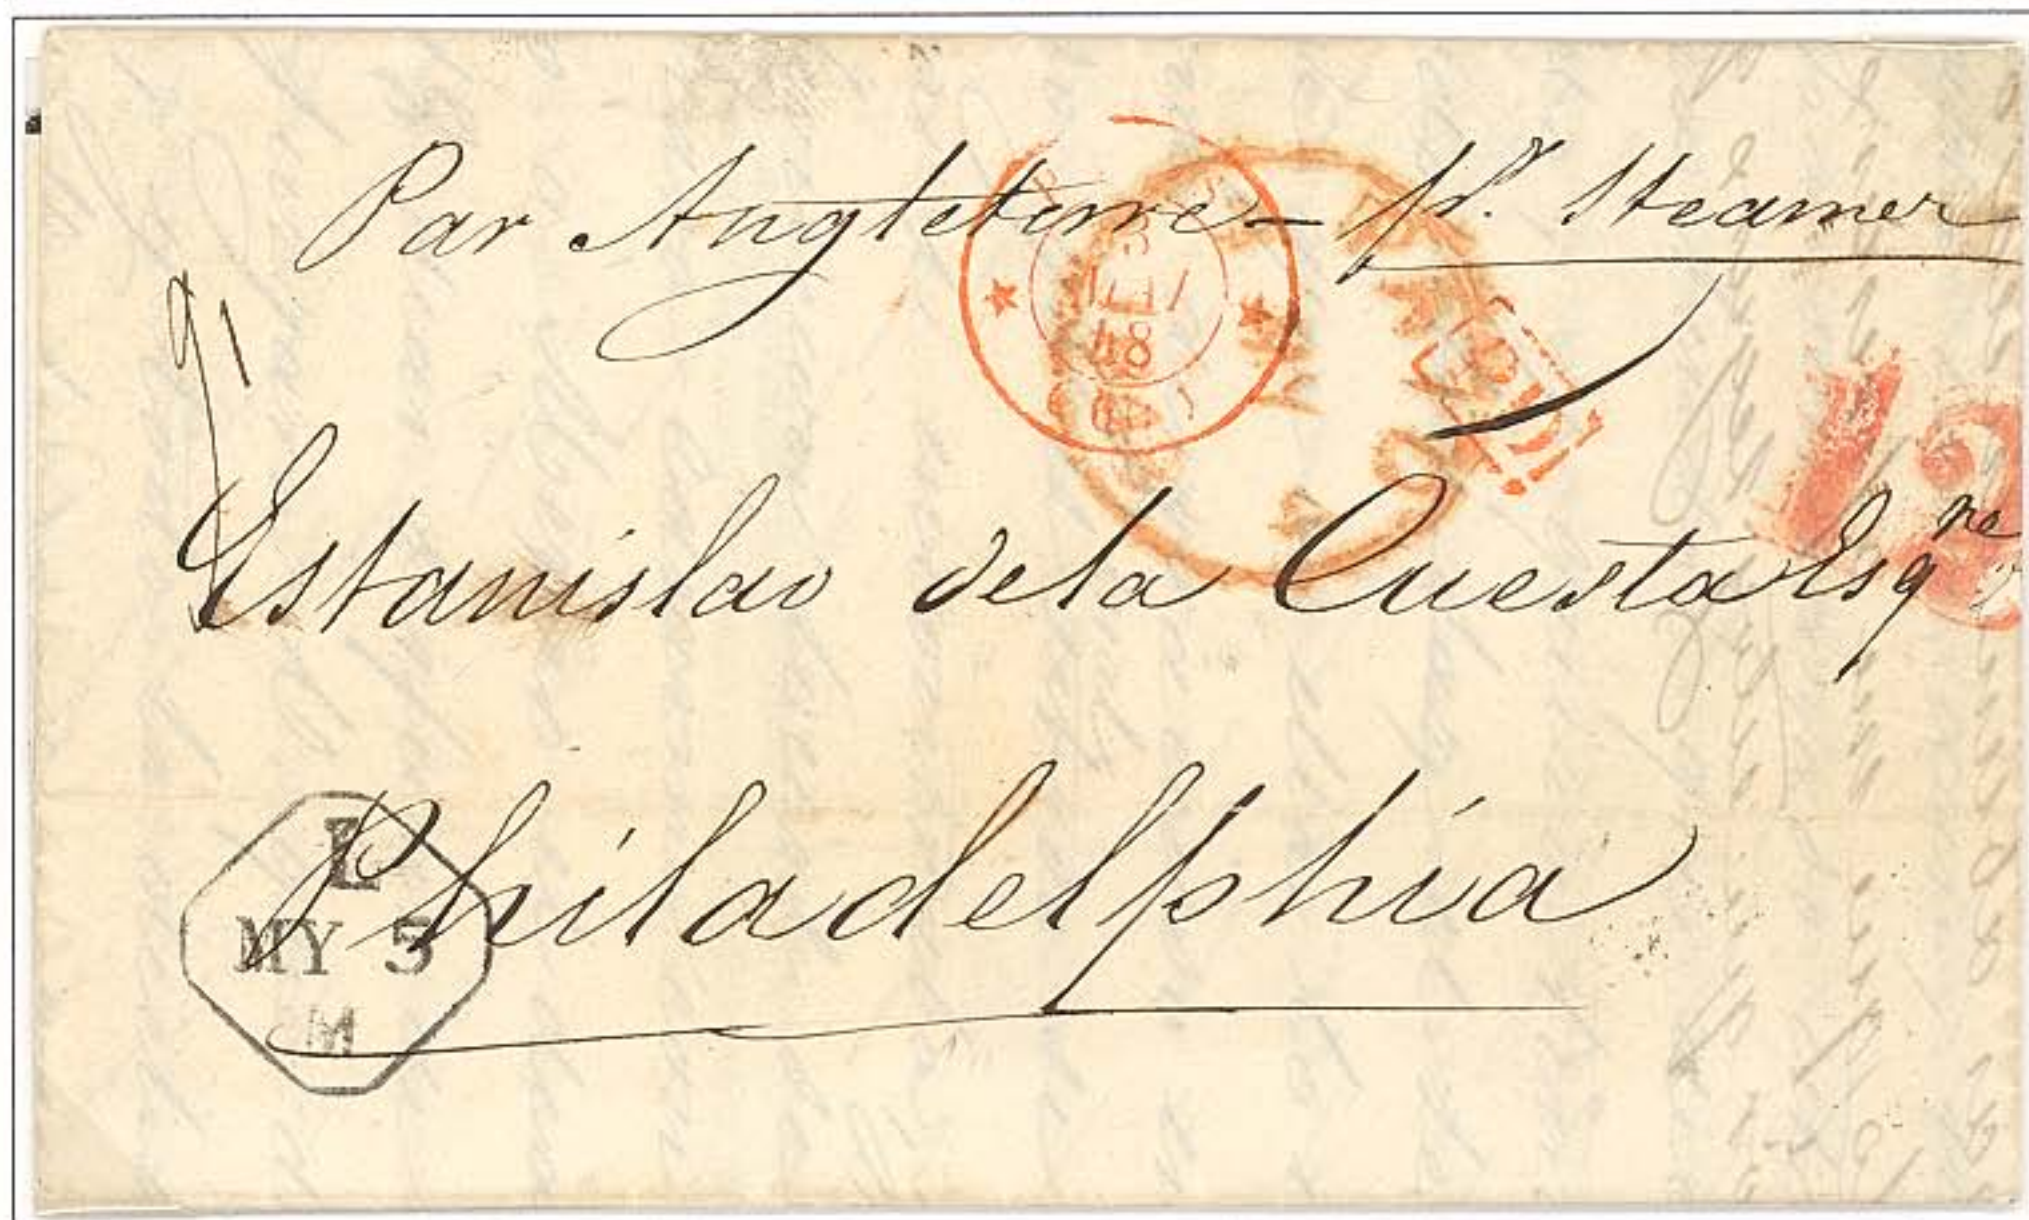 Par Angleterre – pr. Steamer
91
48
P.D.
12
Estanislao de la Cuesta Esqre
Philadelphia
L
MY 5
M